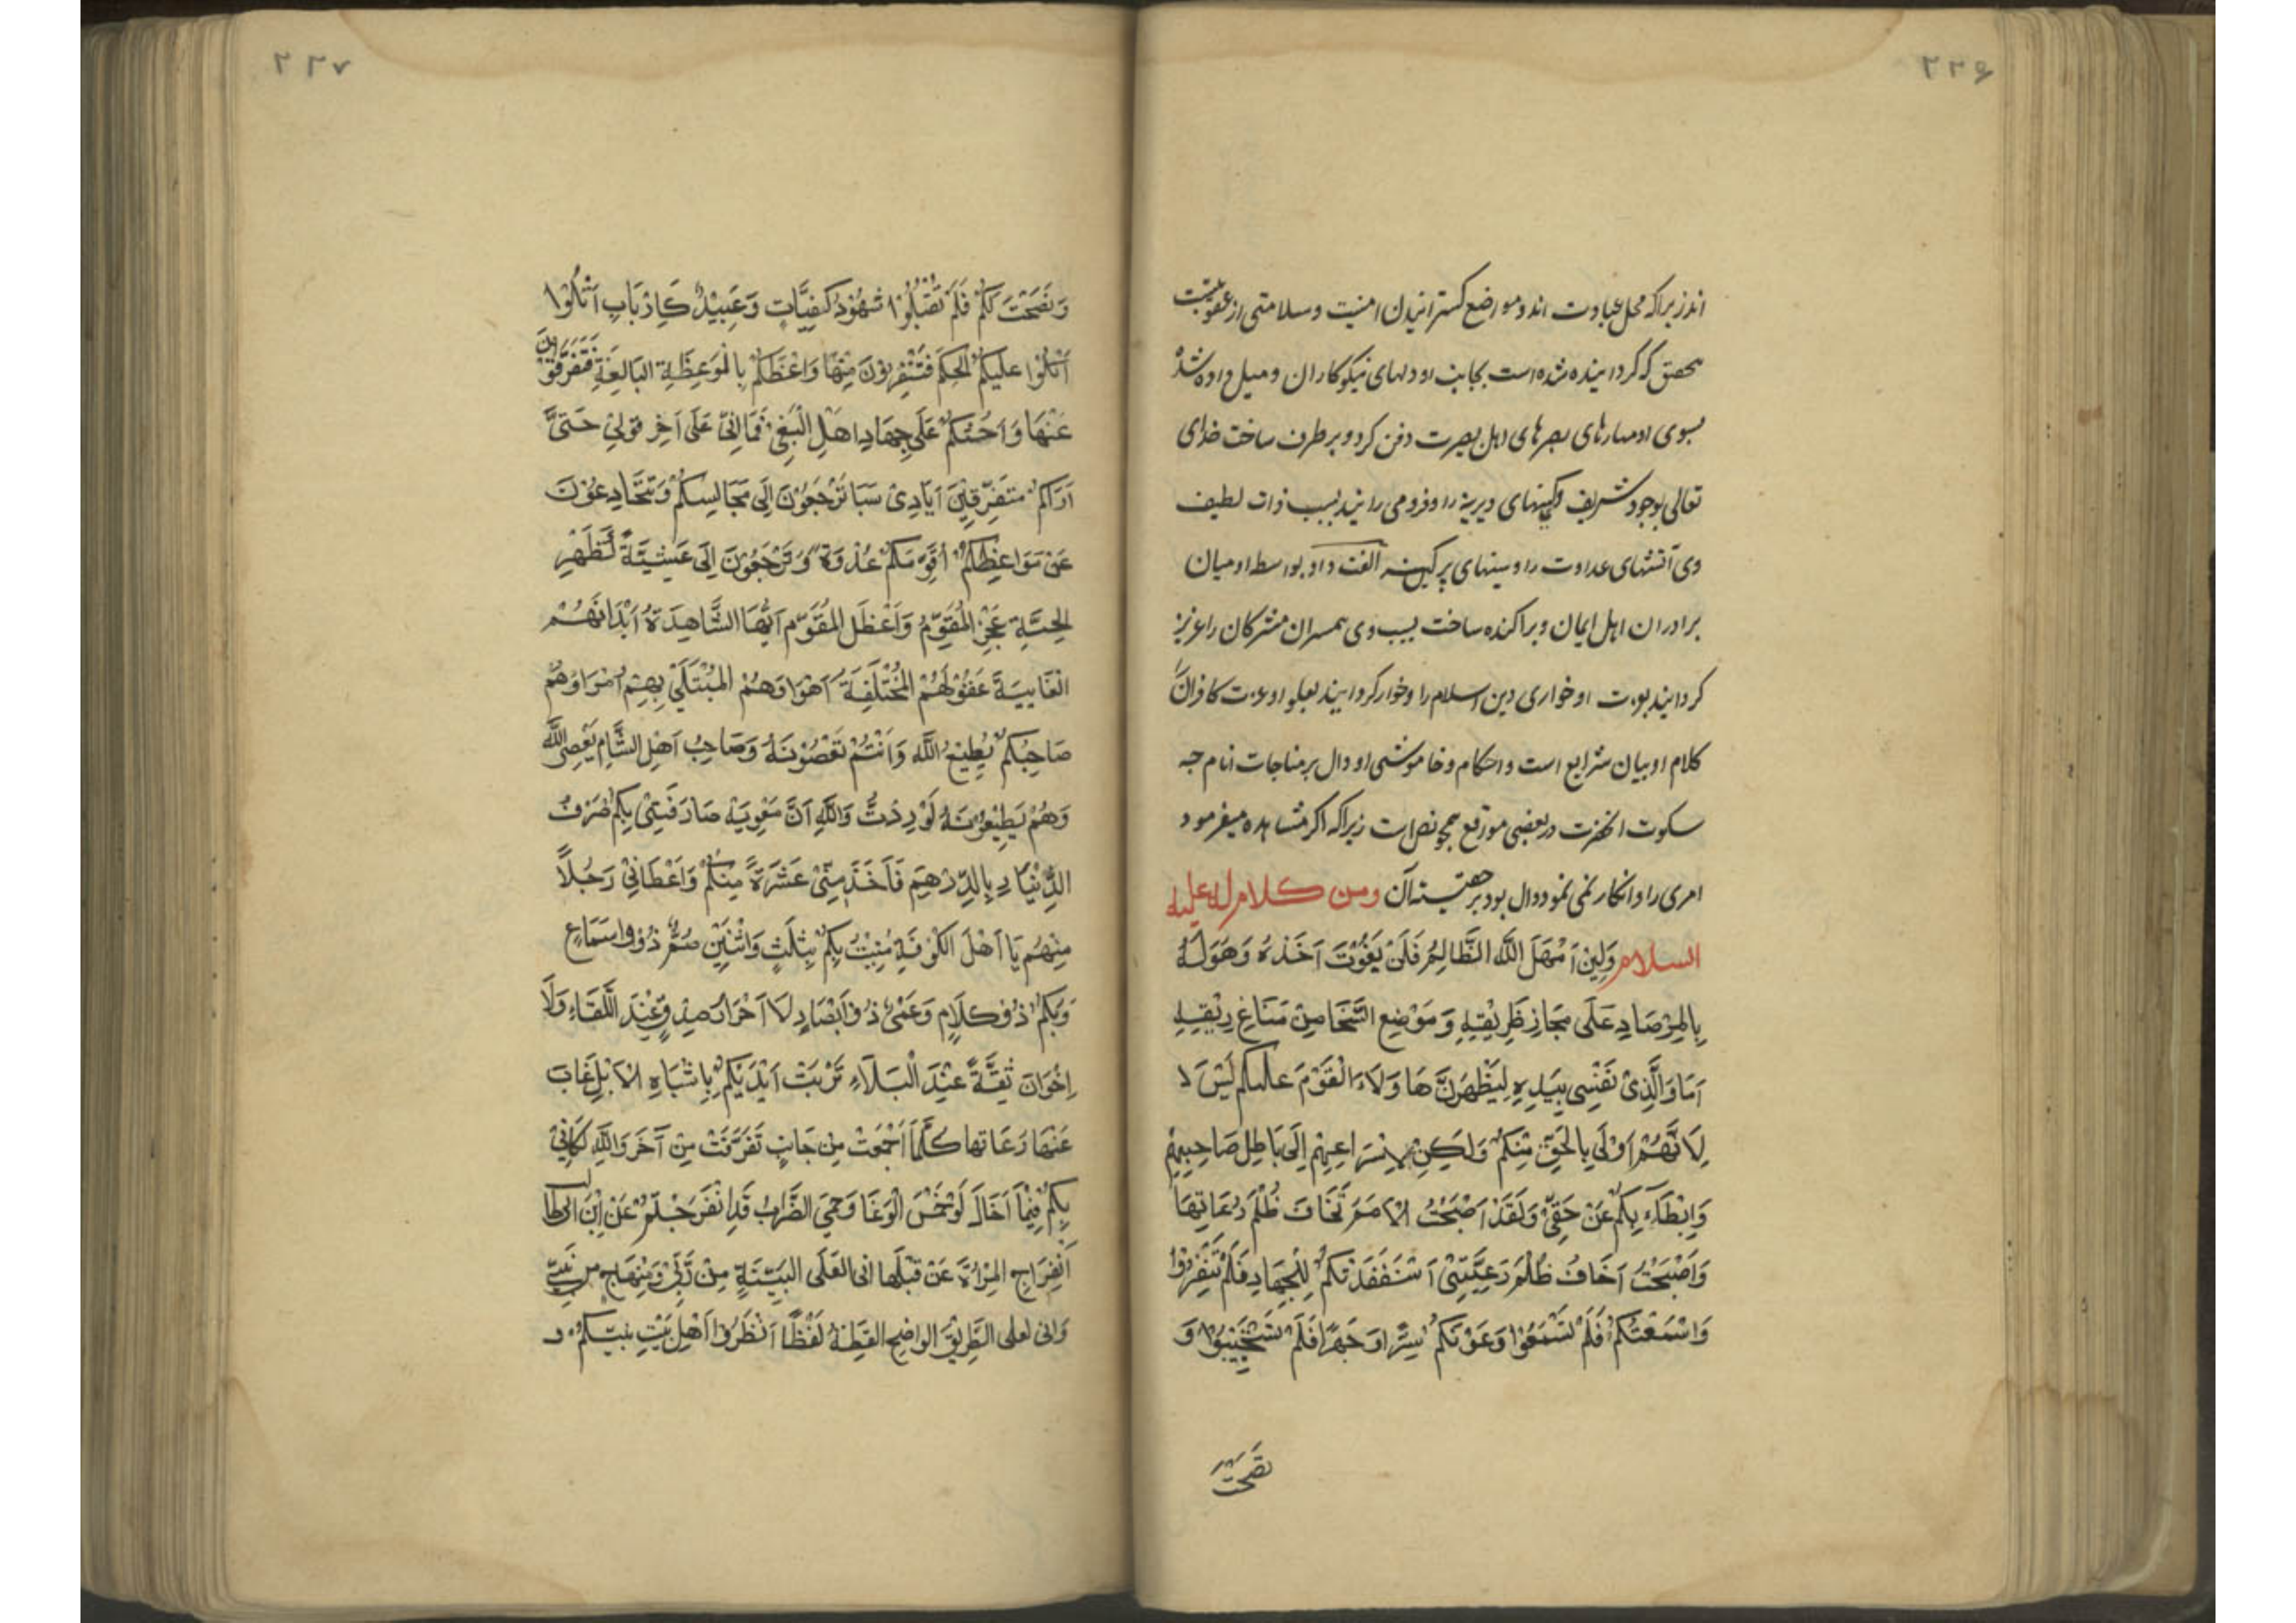 ۲۲۶
اندزیراکه محل عبادت اند و مواضع کسترانیدن امنیت و سلامتی از عقوبت
محقق که کردانیده شده است بجانب او دلهای نیکوکاران و میل داده شد
بسوی او مهارهای بصرهای اهل بصیرت دفن کرد و برطرف ساخت خدای
تعالی بوجود شریف او کینهای دیرینه را و فرو می رانید بسبب ذات لطیف
وی آتشهای عداوت را و سینهای پرکینه الفت داد بواسطه او میان
برادران اهل ایمان و پراکنده ساخت بسبب وی همسران مشرکان را عزیز
کردانید بعزت او خواری دین اسلام را و خوار کردانید بعلو او عزت کافران را
کلام او بیان شرایع است و احکام و خاموشی او دال بر مناجات انام چه
سکوت انحضرت در بعضی مواقع همچو نص است زیراکه اکر مشاهده میفرمود
امری را و انکار نمی نمود دال بود بر حقیقته آن ومن کلام له علیه
السلام وَلَئِنْ اَمْهَلَ اللَّهُ الظَّالِمُ فَلَنْ يَفُوْتَ اَخْذُهُ وَهُوَ لَهُ
بِالْمِرْصَادِ عَلَى مَجَازِ طَرِيْقِهِ وَ مَوْضِعِ الشَّجَا مِنْ مَسَاغِ رِيْقِهِ
اَمَا وَالَّذِىْ نَفْسِى بِيَدِهِ لَيَظْهَرَنَّ هَا وَلَاءِ الْقَوْمَ عليكم لَيْسَ لَا
لِاَنَّهُمْ اَوْلَى بِالْحَقِّ مِنْكُمْ وَلَكِنْ لِاِسْرَاعِهِمْ اِلَى بَاطِلِ صَاحِبِهِمْ
وَاِبْطَاءِ بِكُمْ عَنْ حَقِّىْ وَلَقَدْ اَصْبَحْتُ الْاُمَمُ تَخَافُ ظُلْمَ رُعَاتِهَا
وَاَصْبَحْتُ اَخَافُ ظُلْمَ رَعِيَّتِىْ اَسْتَنْفَذْتُكُمْ لِلْجِهَادِ فَلَمْ تَنْفِرُوْا
وَاَسْمَعْتُكُمْ فَلَمْ تَسْمَعُوْا وَعَوْتُكُمْ سِرًّا وَجَهْرًا فَلَمْ تَسْتَجِيْبُوْا وَ
نصحت
۲۲۷
وَنَصَحْتُ لَكُمْ فَلَمْ تَقْبَلُوْا شُهُوْدُ كَغيَّابٍ وَعَبِيْدٌ كَاَرْبَابِ اَتْلُوْا
اَتْلُوْا عليكم الْحِكَمَ فَتَنْفِرُوْنَ مِنْهَا وَاَعْظُكُمْ بِالْمَوعِظَةِ البَالِغَةِ فَتَفَرَّقُوْنَ
عَنْهَا وَاَحُثُّكُمْ عَلَى جِهَادِ اَهْلِ الْبَغْىِ فَمَا اٰتِىْ عَلَى آخِرِ قَوْلِىْ حَتَّى
اَرَاكُمْ مُتَفَرِّقِيْنَ اَيَادِىْ سَبَا تَرْجِعُوْنَ اِلَى مَجَالِسِكُمْ وَتَتَخَادَعُوْنَ
عَنْ مَوَاعِظِكُمْ اُقَوِّمُكُمْ غُدْوَةً وَتَرْجِعُوْنَ اِلَى عَشِيَّةً كَظَهْرِ
الحَيَّةِ عَجَزَ الْمُقَوِّمُ وَاَعْظَلَ المُقَوَّمُ اَيُّهَا الشَّاهِدَةُ اَبْدَانُهُمْ
الْغَايِبَةُ عُقُوْلُهُمْ الْمُخْتَلِفَةُ اَهْوَاوهُمْ المُبْتَلَىْ بِهِمْ اُمَرَاوُهُمْ
صَاحِبُكُمْ يُطِيْعُ اللَّهَ وَاَنْتُمْ تَعْصُوْنَهُ وَصَاحِبُ اَهْلِ الشَّامِ يَعْصِى اللَّهَ
وَهُمْ يُطِيْعُوْنَهُ لَوَدِدْتُ وَاللَّهِ اَنَّ مَعْوِيَةَ صَارَفَنِىْ بِكُمْ صَرْفَ
الدِّيْنَارِ بِالدِّرْهَمِ فَاَخَذَ مِنِّىْ عَشَرَةً مِنْكُمْ وَاَعْطَانِىْ رَجُلاً
مِنْهُمْ يَا اَهْلَ الْكُوْفَةِ مُنِيْتُ بِكُمْ بِثَلَثٍ وَاثْنَيْنِ صُمٌّ ذُوُو اسْمَاعٍ
وَبُكْمٌ ذُوْ كَلَامٍ وَعُمْىٌ ذُوْ اَبْصَارٍ لَا اَحْرَارُ صِدْقٍ عِنْدَ اللِّقَاءِ وَلَا
اِخْوَانَ ثِقَةً عِنْدَ الْبَلَاءِ تَرِبَتْ اَيْدِيَكُمْ يَا شْبَاهِ الْاِبْلِ غَابَ
عَنْهَا رُعَاتها كُلَّمَا اَجْمَعَتْ مِنْ جَانِبٍ تَفَرَّقَتْ مِنْ آخَرَ وَاللَّهِ لَكَاَنِّىْ
بِكُمْ فِيْمَا اَخَالَ لَوْ حَمْسَ الْوَغَا وَحَمِىَ الضَّرَابُ قَدِ انْفَرَجْتُمْ عَنْ اِبْنِ ابىطا
لب
اَنْفِرَاجِ الْمِرْاَةِ عَنْ قُبْلِهَا انى لعَلَى البَيِّنَةٍ مِنْ رَبِّىْ وَمِنْهَاجٍ من نَبِىِّ
وَانى لعلى الطَّرِيْقِ الواضِحِ القُطُهُ لَقْطًا اُنْظُرُوْا اَهْلَ بَيْتِ نَبِيِّكُمْ